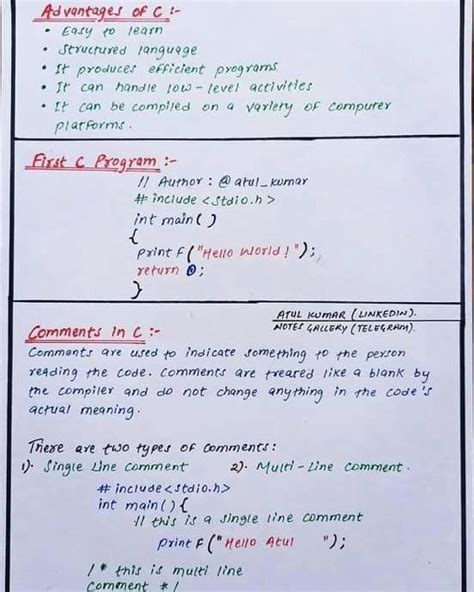 Advantages of C :-
• Easy to learn
• Structured language
• It produces efficient programs
• It can handle low-level activities
• It can be compiled on a variety of computer
platforms.
First C Program :-
// Author : @atul_kumar
# include <stdio.h>
int main( )
{
printf("Hello World!");
return 0;
}
ATUL KUMAR (LINKEDIN).
NOTES GALLERY (TELEGRAM).
Comments in C :-
Comments are used to indicate something to the person
reading the code. Comments are treared like a blank by
the compiler and do not change anything in the code's
actual meaning.
There are two types of comments:
1). Single Line Comment 2). Multi-Line Comment.
# include<stdio.h>
int main(){
// this is a single line comment
printf("Hello Atul ");
/* this is multi line
Comment */